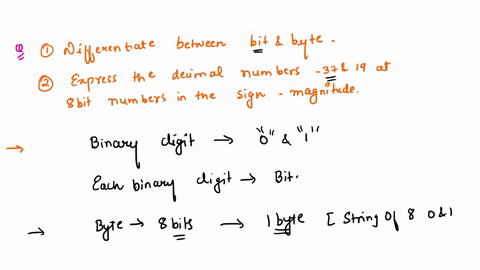 Q ① Differentiate between bit & byte.
② Express the decimal numbers -37 & 19 at
8bit numbers in the sign - magnitude.
→ Binary digit → "0" & "1"
Each binary digit → Bit.
→ Byte → 8 bits → 1 byte [ String of 8 0 & 1